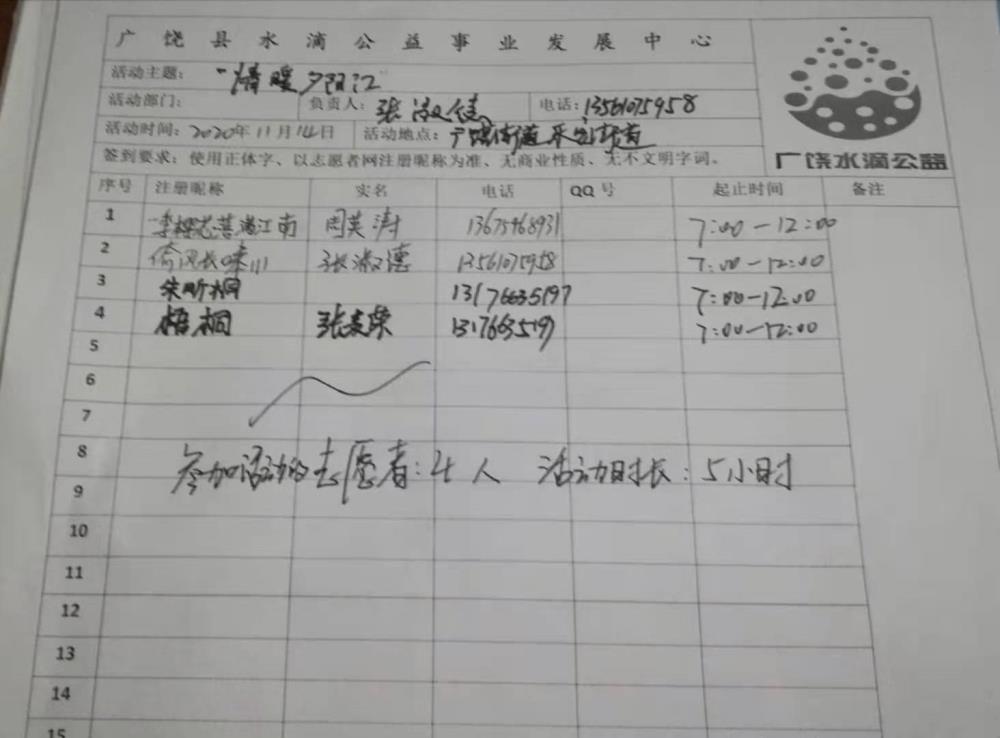 广饶县水滴公益事业发展中心
活动主题: 情暖夕阳江
活动部门: 负责人: 张淑德 电话: 13561075958
活动时间: 2020年11月14日 活动地点: 广饶街道乐安街道
签到要求: 使用正体字、以志愿者网注册昵称为准、无商业性质、无不文明字词。
广饶水滴公益
序号 注册昵称 实名 电话 QQ号 起止时间 备注
1 江南 周英涛 13675468931 7:00—12:00
2 张淑德 13561075958 7:00—12:00
3 朱昕桐 13176635197 7:00—12:00
4 梧桐 张 13176635197 7:00—12:00
5
6
7
8
参加活动的志愿者: 4人 活动时长: 5小时
9
10
11
12
13
14
15